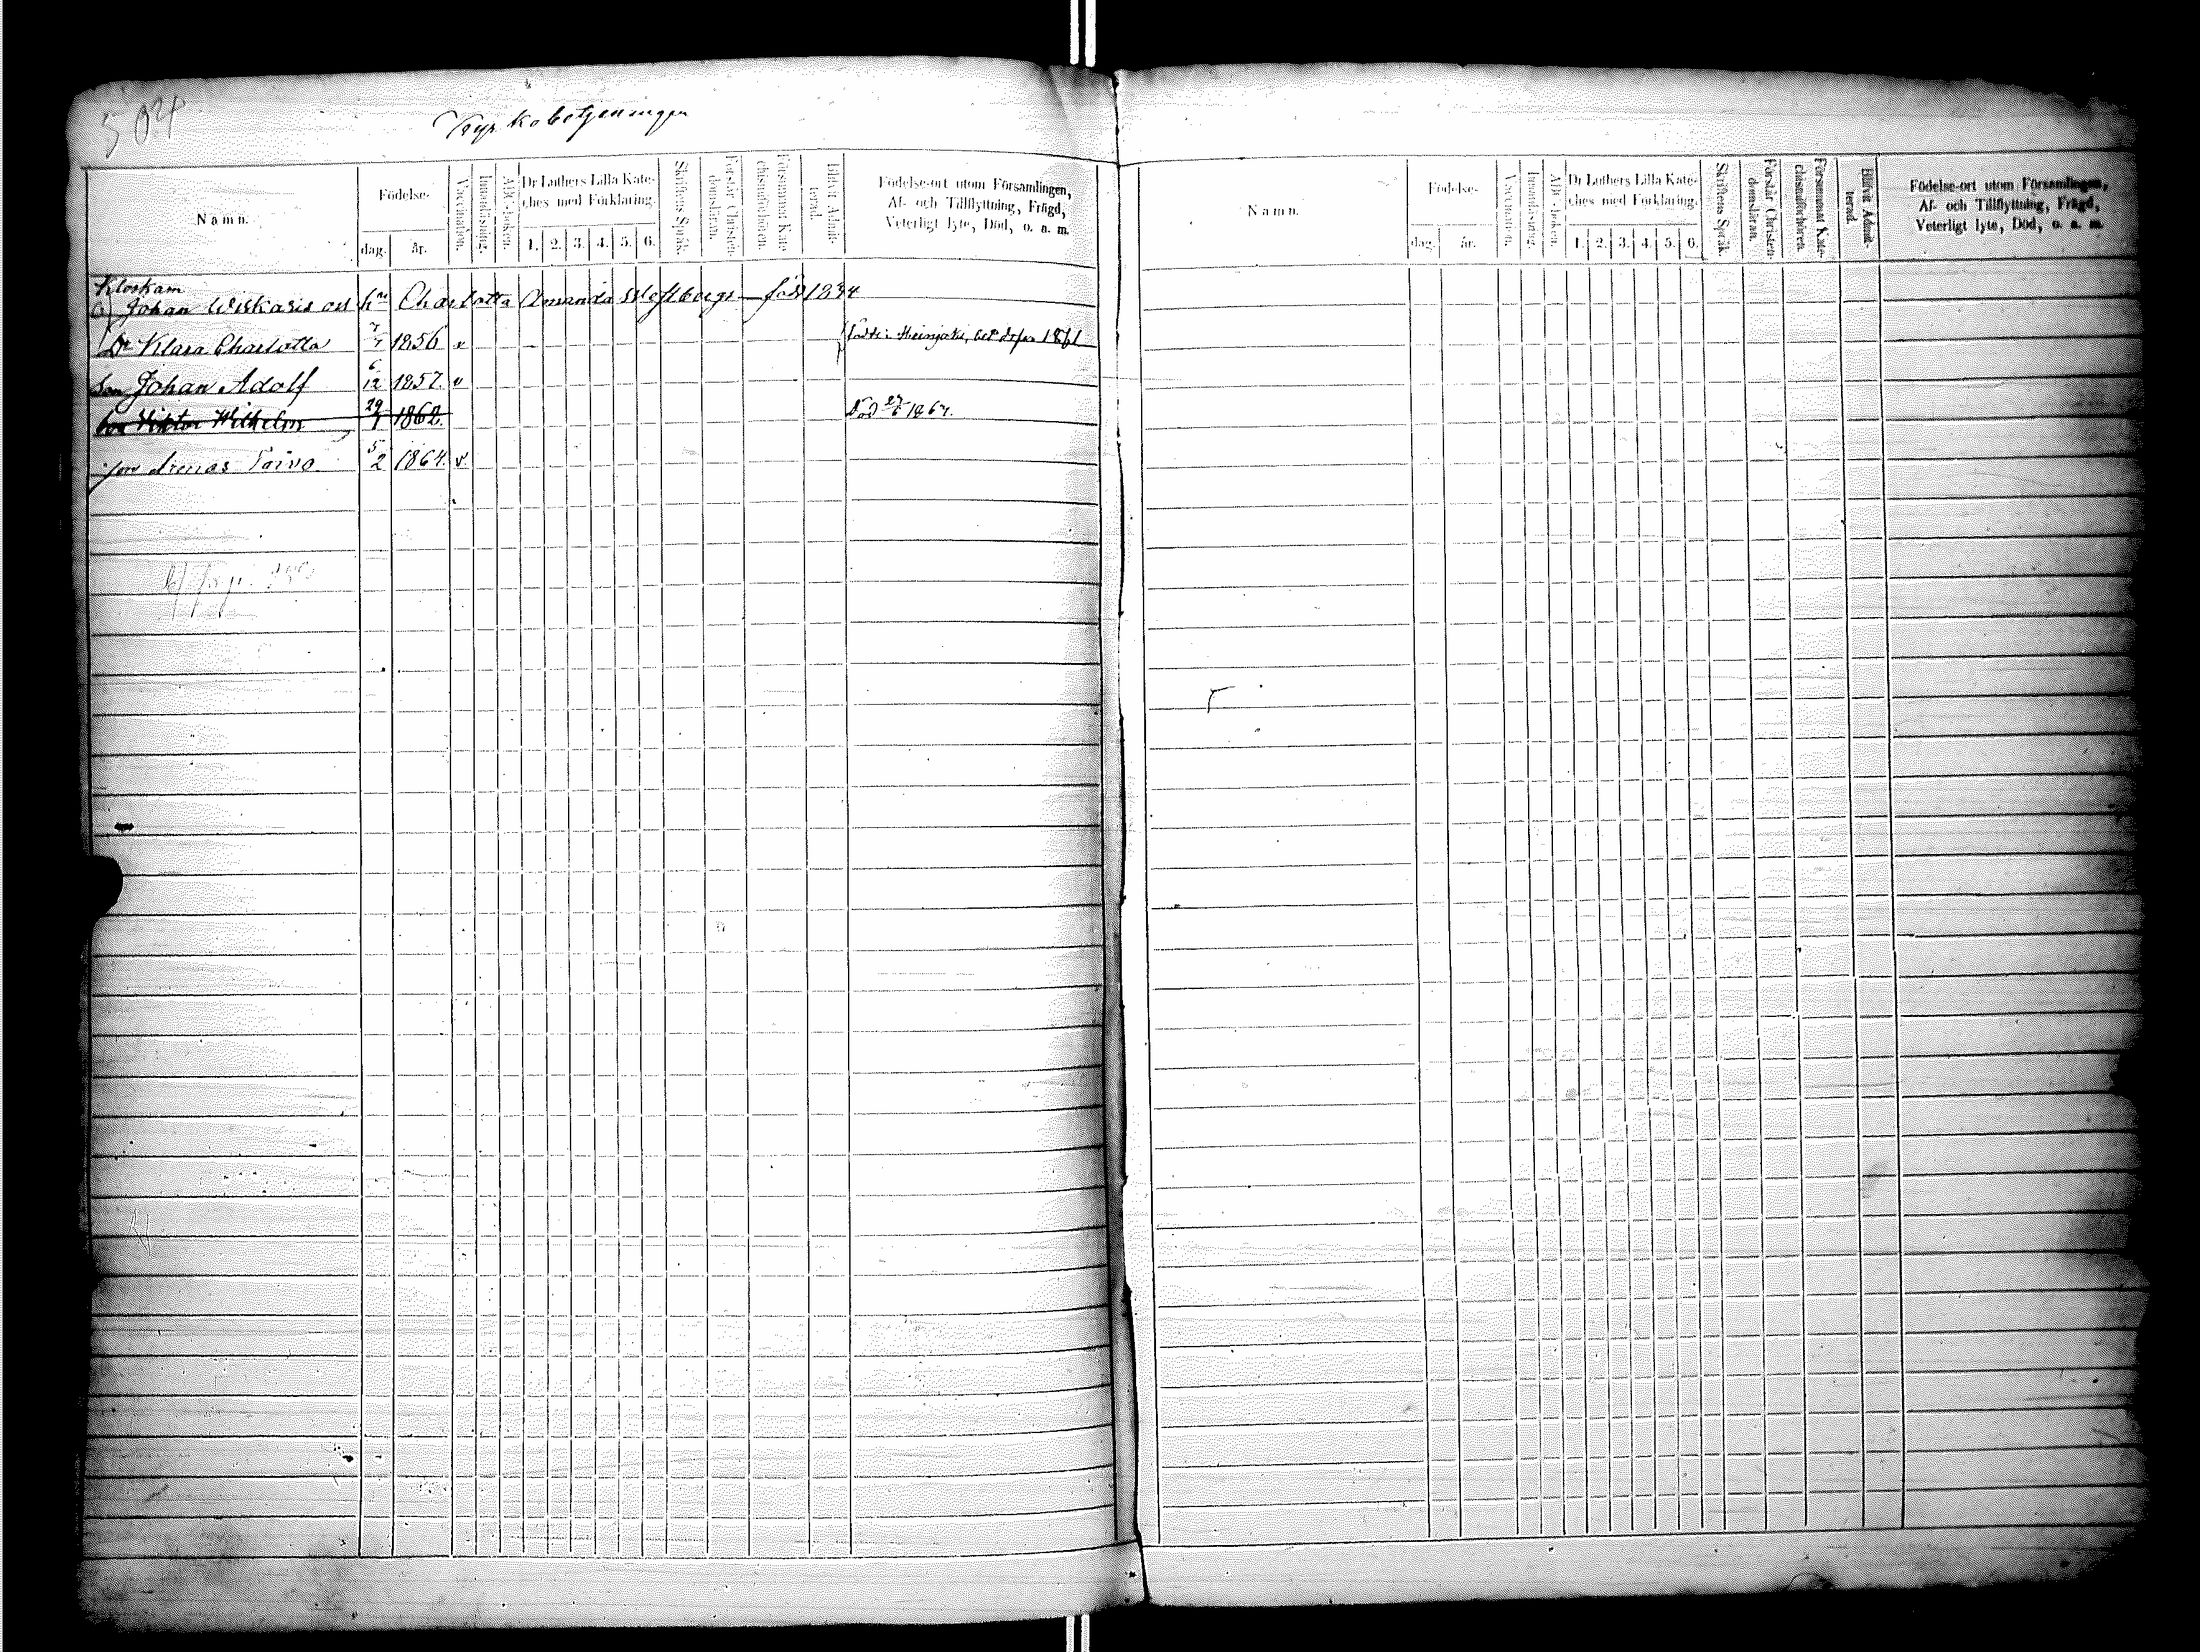 504
Kyrkobetjeningen
Namn.
Födelse-
dag.
år.
Vaccination.
Innanläsning.
ABC-boken.
Dr Luthers Lilla Kate-
ches med Förklaring.
1. 2. 3. 4. 5. 6.
Skriftens Språk.
Förstår Christen-
domsläran.
Försummat Kate-
chismiförhören.
Blifvit Admit-
terad.
Födelse-ort utom Församlingen,
Af- och Tillflyttning, Frägd,
Veterligt lyte, Död, o. a. m.
Klockarn
Johan Wiskari och hn Charlotta Amanda född 1834
Dr Klara Charlotta 7/7 1856 v födde i Heinjoki, 1861
Son Johan Adolf 6/12 1857. v
Son Viktor Wilhelm 29/1 1862. Död 1867.
Son Toivo 5/2 1864. v.
Namn.
Födelse-
dag.
år.
Vaccination.
Innanläsning.
ABC-boken.
Dr Luthers Lilla Kate-
ches med Förklaring.
1. 2. 3. 4. 5. 6.
Skriftens Språk.
Förstår Christen-
domsläran.
Försummat Kate-
chismiförhören.
Blifvit Admit-
terad.
Födelse-ort utom Församlingen,
Af- och Tillflyttning, Frägd,
Veterligt lyte, Död, o. a. m.